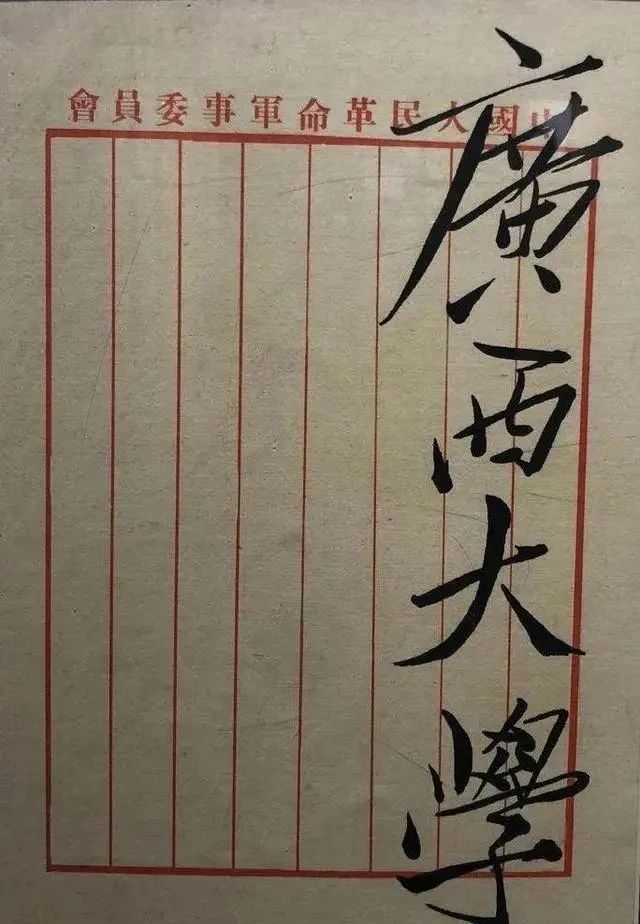 中國人民革命軍事委員會
廣西大學